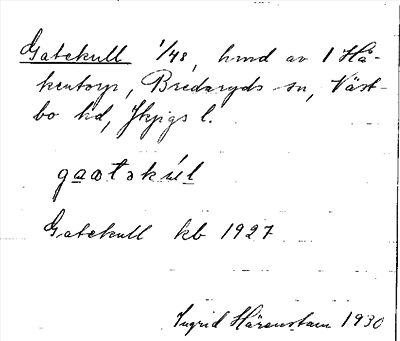 Gatekull 1/48, hmd av 1 Hå-
kentorp, Bredaryds sn, Väst-
bo hd, Jkpigs l.
gaatəkúl
Gatekull kb 1927
Ingrid Härenstam 1930